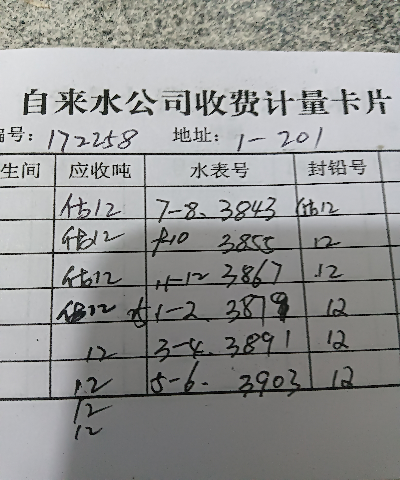 自来水公司收费计量卡片
编号: 172258 地址: 1-201
生间 应收吨 水表号 封铅号
估12 7-8. 3843 估12
估12 9-10 3855 12
估12 11-12 3867 12
估12 1-2. 3879 12
12 3-4. 3891 12
12 5-6. 3903 12
12
12